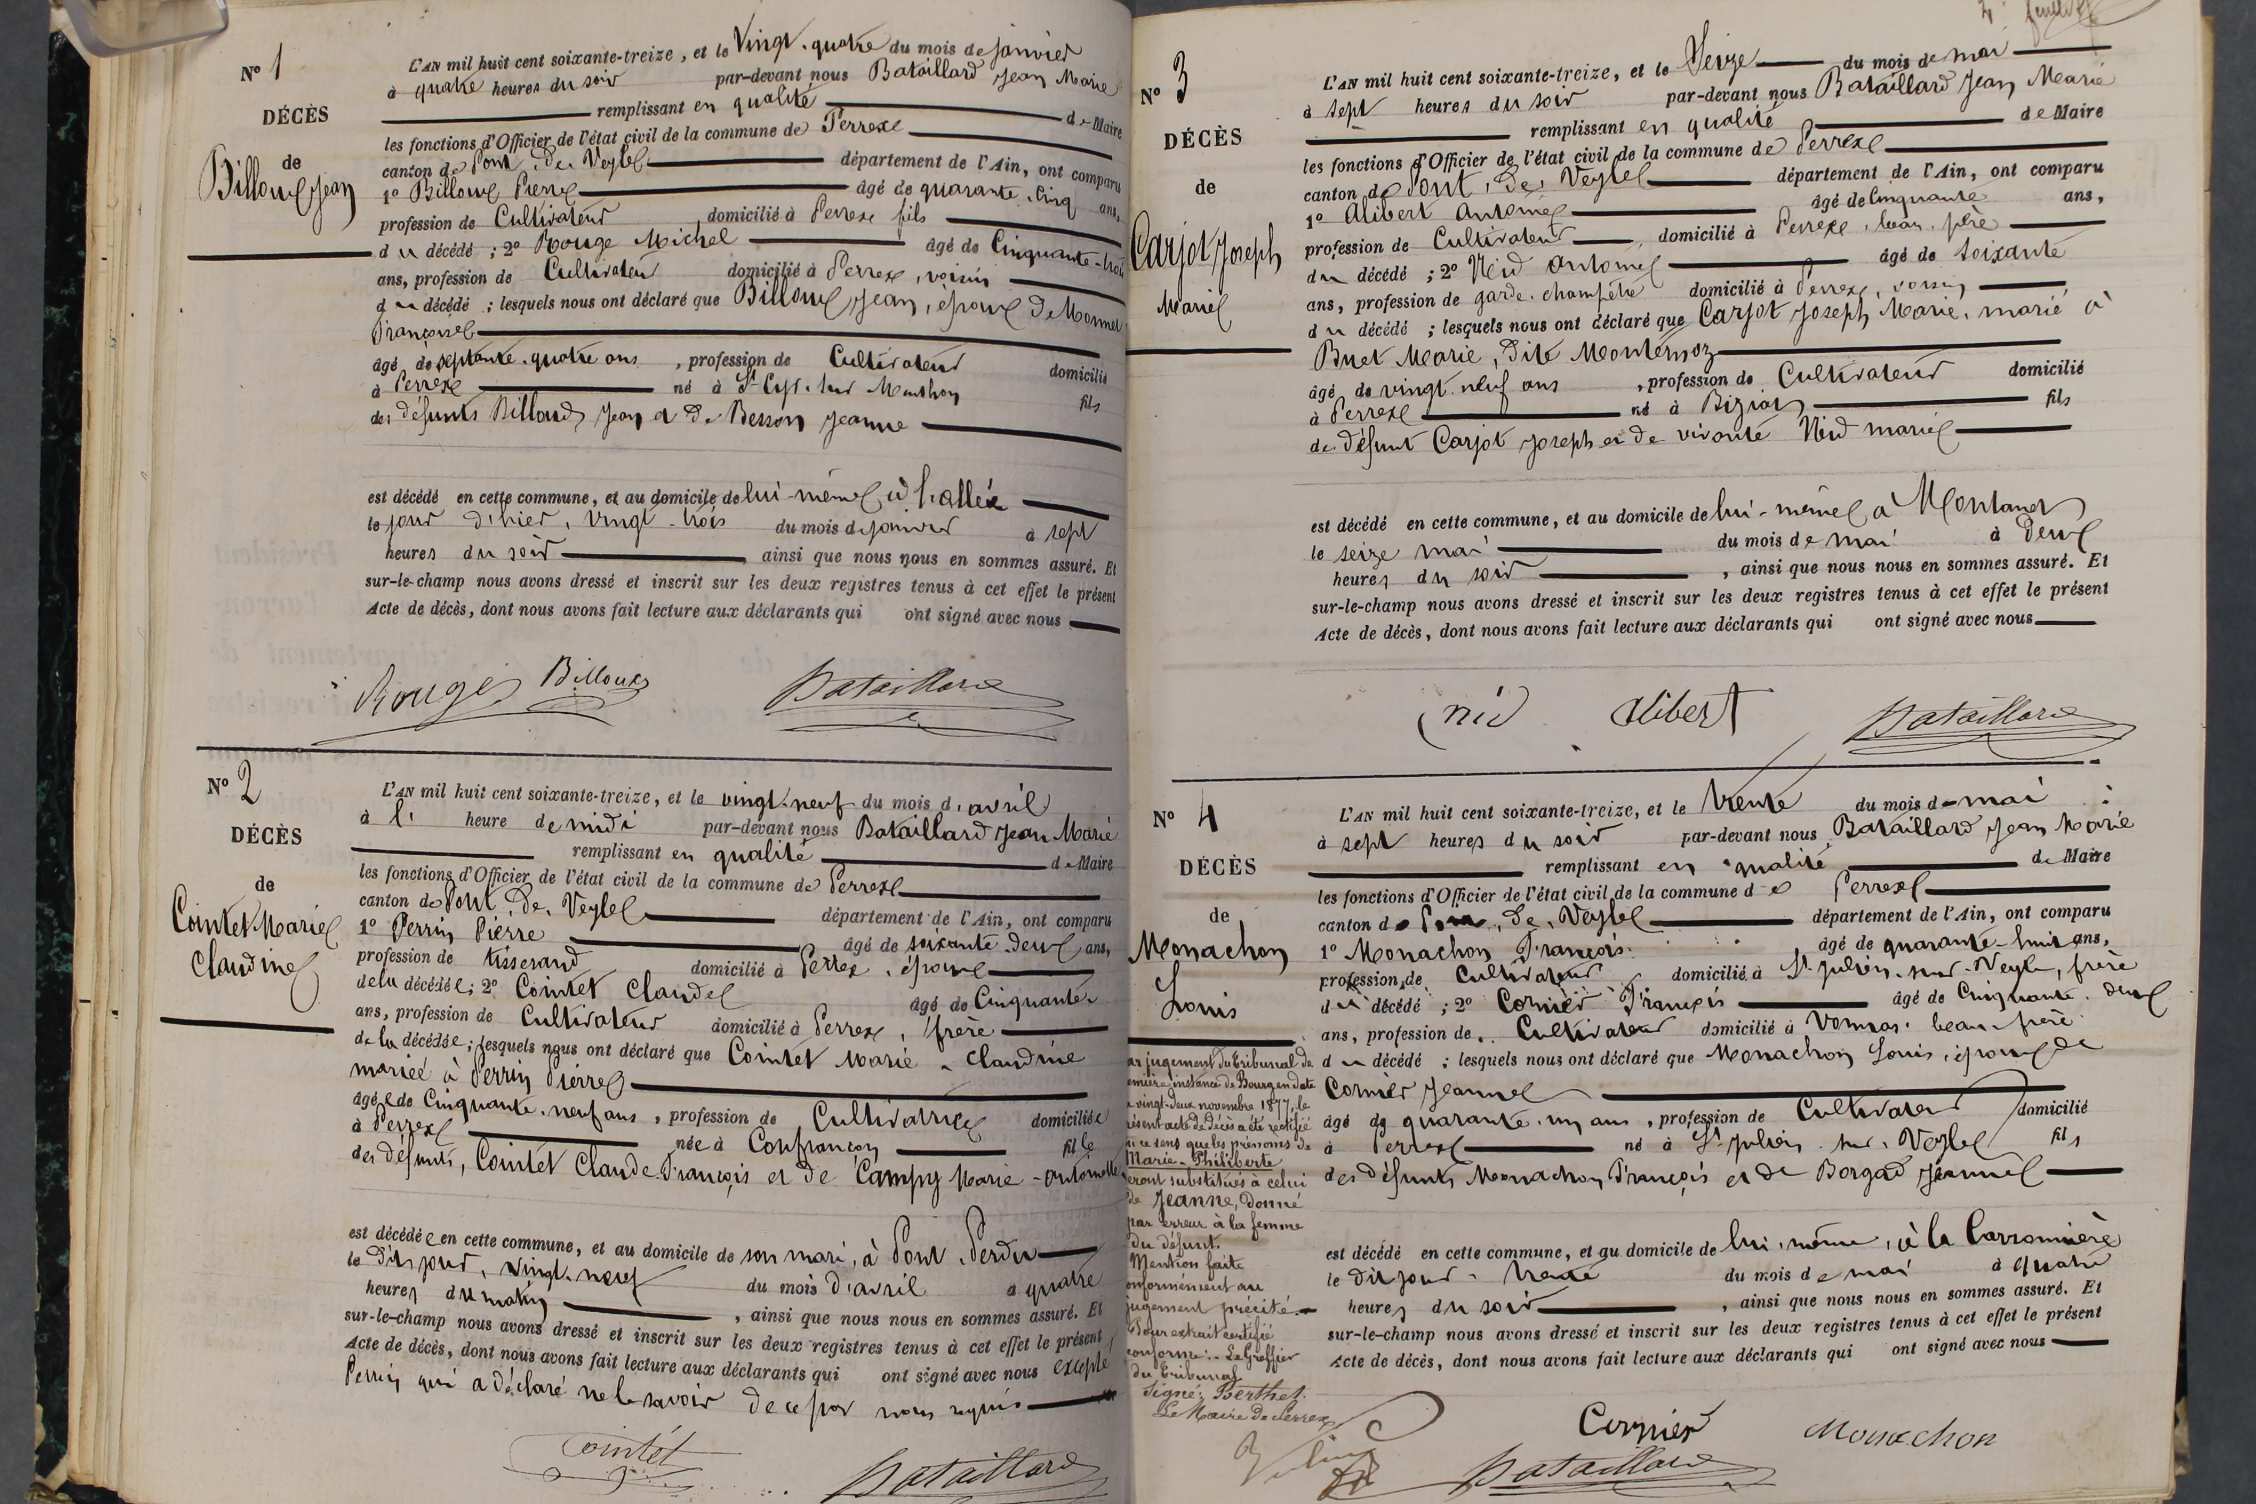 Nº 1
DÉCÈS
de
Billoux Jean
L'AN mil huit cent soixante-treize, et le Vingt-quatre du mois de janvier
à quatre heures du soir par-devant nous Bataillard Jean Marie
remplissant en qualité de Maire
les fonctions d'Officier de l'état civil de la commune de Perrex
canton de Pont-de-Veyle département de l'Ain, ont comparu
1º Billoux Pierre âgé de quarante-cinq ans,
profession de Cultivateur domicilié à Perrex fils
du décédé ; 2º Rouge Michel âgé de Cinquante-trois
ans, profession de Cultivateur domicilié à Perrex, voisin
du décédé ; lesquels nous ont déclaré que Billoux Jean, époux de Monnet
Françoise
âgé de septante-quatre ans, profession de Cultivateur domicilié
à Perrex né à St Cyr-sur Menthon fils
des défunts Billoud Jean et de Besson Jeanne
est décédé en cette commune, et au domicile de lui-même à l'allée
le jour d'hier, vingt-trois du mois de janvier à sept
heures du soir ainsi que nous nous en sommes assuré. Et
sur-le-champ nous avons dressé et inscrit sur les deux registres tenus à cet effet le présent
Acte de décès, dont nous avons fait lecture aux déclarants qui ont signé avec nous
Rouge Billoux Bataillard
Nº 2
DÉCÈS
de
Cointet Marie
Claudine
L'AN mil huit cent soixante-treize, et le vingt-neuf du mois d'avril
à l' heure de midi par-devant nous Bataillard Jean Marie
remplissant en qualité de Maire
les fonctions d'Officier de l'état civil de la commune de Perrex
canton de Pont-de-Veyle département de l'Ain, ont comparu
1º Perrin Pierre âgé de soixante-deux ans,
profession de tisserand domicilié à Perrex, époux
de la décédée ; 2º Cointet Claude âgé de Cinquante
ans, profession de Cultivateur domicilié à Perrex, frère
de la décédée ; lesquels nous ont déclaré que Cointet Marie-Claudine
mariée à Perrin Pierre
âgée de Cinquante-neuf ans, profession de Cultivatrice domiciliée
à Perrex née à Confrançon fille
des défunts, Cointet Claude-François et de Campy Marie-Antoinette
est décédée en cette commune, et au domicile de son mari, à Pont-Perdu
le dit jour, vingt-neuf du mois d'avril à quatre
heures du matin, ainsi que nous nous en sommes assuré. Et
sur-le-champ nous avons dressé et inscrit sur les deux registres tenus à cet effet le présent
Acte de décès, dont nous avons fait lecture aux déclarants qui ont signé avec nous excepté
Perrin qui a déclaré ne le savoir de ce par nous requis
Cointet Bataillard
Nº 3
DÉCÈS
de
Carjot Joseph
Marie
L'AN mil huit cent soixante-treize, et le Seize du mois de mai
à sept heures du soir par-devant nous Bataillard Jean Marie
remplissant en qualité de Maire
les fonctions d'Officier de l'état civil de la commune de Perrex
canton de Pont-de-Veyle département de l'Ain, ont comparu
1º Alibert Antoine âgé de Cinquante ans,
profession de Cultivateur, domicilié à Perrex, beau-père
du décédé ; 2º Nid Antoine âgé de soixante
ans, profession de garde-champêtre domicilié à Perrex, voisin
du décédé ; lesquels nous ont déclaré que Carjot Joseph Marie, marié à
Buet Marie, dite Monternoz
âgé de vingt-neuf ans, profession de Cultivateur domicilié
à Perrex né à Biziat fils
de défunt Carjot Joseph et de vivante Nid marie
est décédé en cette commune, et au domicile de lui-même à Montanet
le seize mai du mois de mai à deux
heures du soir, ainsi que nous nous en sommes assuré. Et
sur-le-champ nous avons dressé et inscrit sur les deux registres tenus à cet effet le présent
Acte de décès, dont nous avons fait lecture aux déclarants qui ont signé avec nous
nid Alibert Bataillard
Nº 4
DÉCÈS
de
Monachon
Louis
L'AN mil huit cent soixante-treize, et le trente du mois de mai
à sept heures du soir par-devant nous Bataillard Jean Marie
remplissant en qualité de Maire
les fonctions d'Officier de l'état civil de la commune de Perrex
canton de Pont-de-Veyle département de l'Ain, ont comparu
1º Monachon François âgé de quarante-huit ans,
profession de Cultivateur domicilié à St julien-sur-Veyle, frère
du décédé ; 2º Cornier François âgé de Cinquante-deux
ans, profession de Cultivateur domicilié à Vonnas, beau-frère
du décédé ; lesquels nous ont déclaré que Monachon Louis, époux de
Cornier Jeanne
âgé de quarante-un ans, profession de Cultivateur domicilié
à Perrex né à St julien-sur-Veyle fils
des défunts Monachon François et de Borgad Jeanne
est décédé en cette commune, et au domicile de lui-même, à la Carronnière
le dit jour, trente du mois de mai à quatre
heures du soir, ainsi que nous nous en sommes assuré. Et
sur-le-champ nous avons dressé et inscrit sur les deux registres tenus à cet effet le présent
Acte de décès, dont nous avons fait lecture aux déclarants qui ont signé avec nous
Cornier Monachon
Bataillard
ar jugement du tribunal de
emière instance de Bourg en date
u vingt-deux novembre 1877, le
résent acte de décès a été rectifié
n ce sens que les prénoms de
Marie-Philiberte
eront substitués à celui
de Jeanne, donné
par erreur à la femme
du défunt.
Mention faite
onformément au
jugement précité.
Pour extrait certifié
conforme: Le Greffier
du tribunal
Signé: Berthet
Le Maire de Perrex